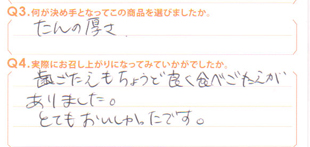 Q3.何が決め手となってこの商品を選びましたか。
たんの厚さ
Q4.実際にお召し上がりになってみていかがでしたか。
歯ごたえもちょうど良く食べごたえが
ありました。
とてもおいしかったです。